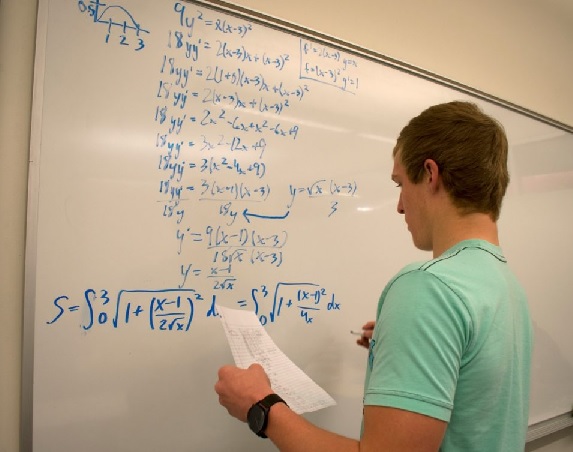 0.5
1 2 3
9y² = x(x-3)²
18yy' = 2(x-3)x + (x-3)²
f' = 2(x-3) y = x
f = (x-3)² y' = 1
18yy' = 2(x-3)x + (x-3)²
18yy' = 2x² - 6x + x² - 6x + 9
18yy' = 3x² - 12x + 9
18yy' = 3(x² - 4x + 9)
18yy' = 3(x-1)(x-3)
18y 18y
y = √x (x-3)
3
y' = 9(x-1)(x-3)
18√x (x-3)
y' = x-1
2√x
S = ∫₀³ √1 + (x-1/2√x)² d = ∫₀³ √1 + (x-1)²/4x dx